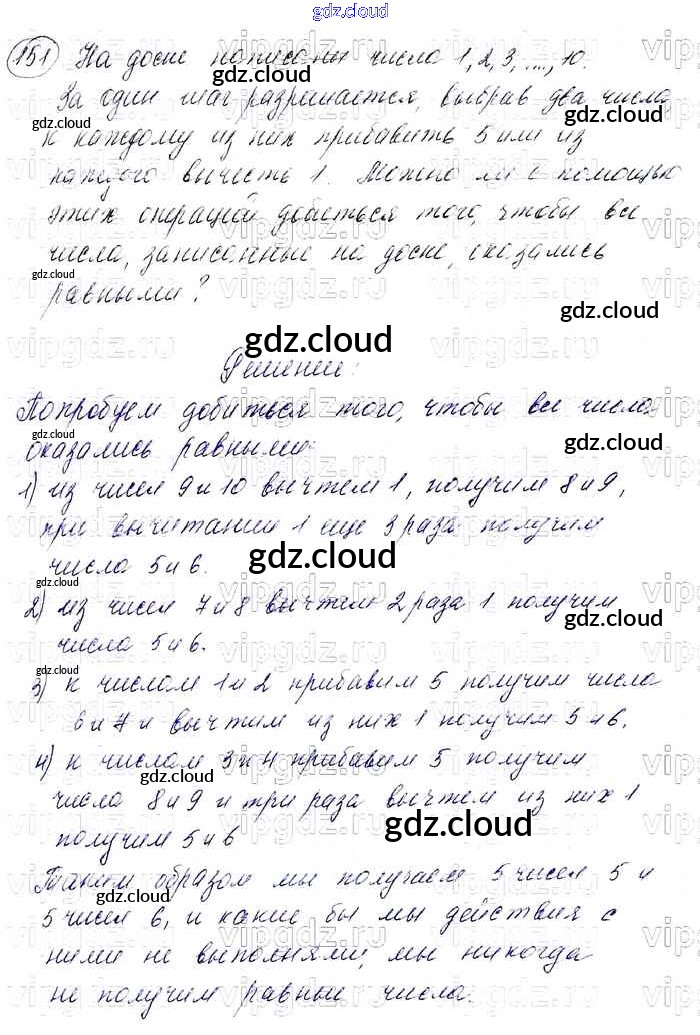 gdz.cloud
151 На доске написаны числа 1, 2, 3, ..., 10.
За один шаг разрешается, выбрав два числа
к каждому из них прибавить 5 или из
каждого вычесть 1. Можно ли с помощью
этих операций добиться того, чтобы все
числа, записанные на доске, оказались
равными?
Решение:
Попробуем добиться того, чтобы все числа
оказались равными:
1) из чисел 9 и 10 вычтем 1, получим 8 и 9,
при вычитании 1 еще 3 раза получим
числа 5 и 6.
2) из чисел 7 и 8 вычтем 2 раза 1 получим
числа 5 и 6.
3) к числам 1 и 2 прибавим 5 получим числа
6 и 7 и вычтим из них 1 получим 5 и 6.
4) к числам 3 и 4 прибавим 5 получим
числа 8 и 9 и три раза вычтем из них 1
получим 5 и 6
Таким образом мы получаем 5 чисел 5 и
5 чисел 6, и какие бы мы действия с
ними не выполняли, мы никогда
не получим равные числа.